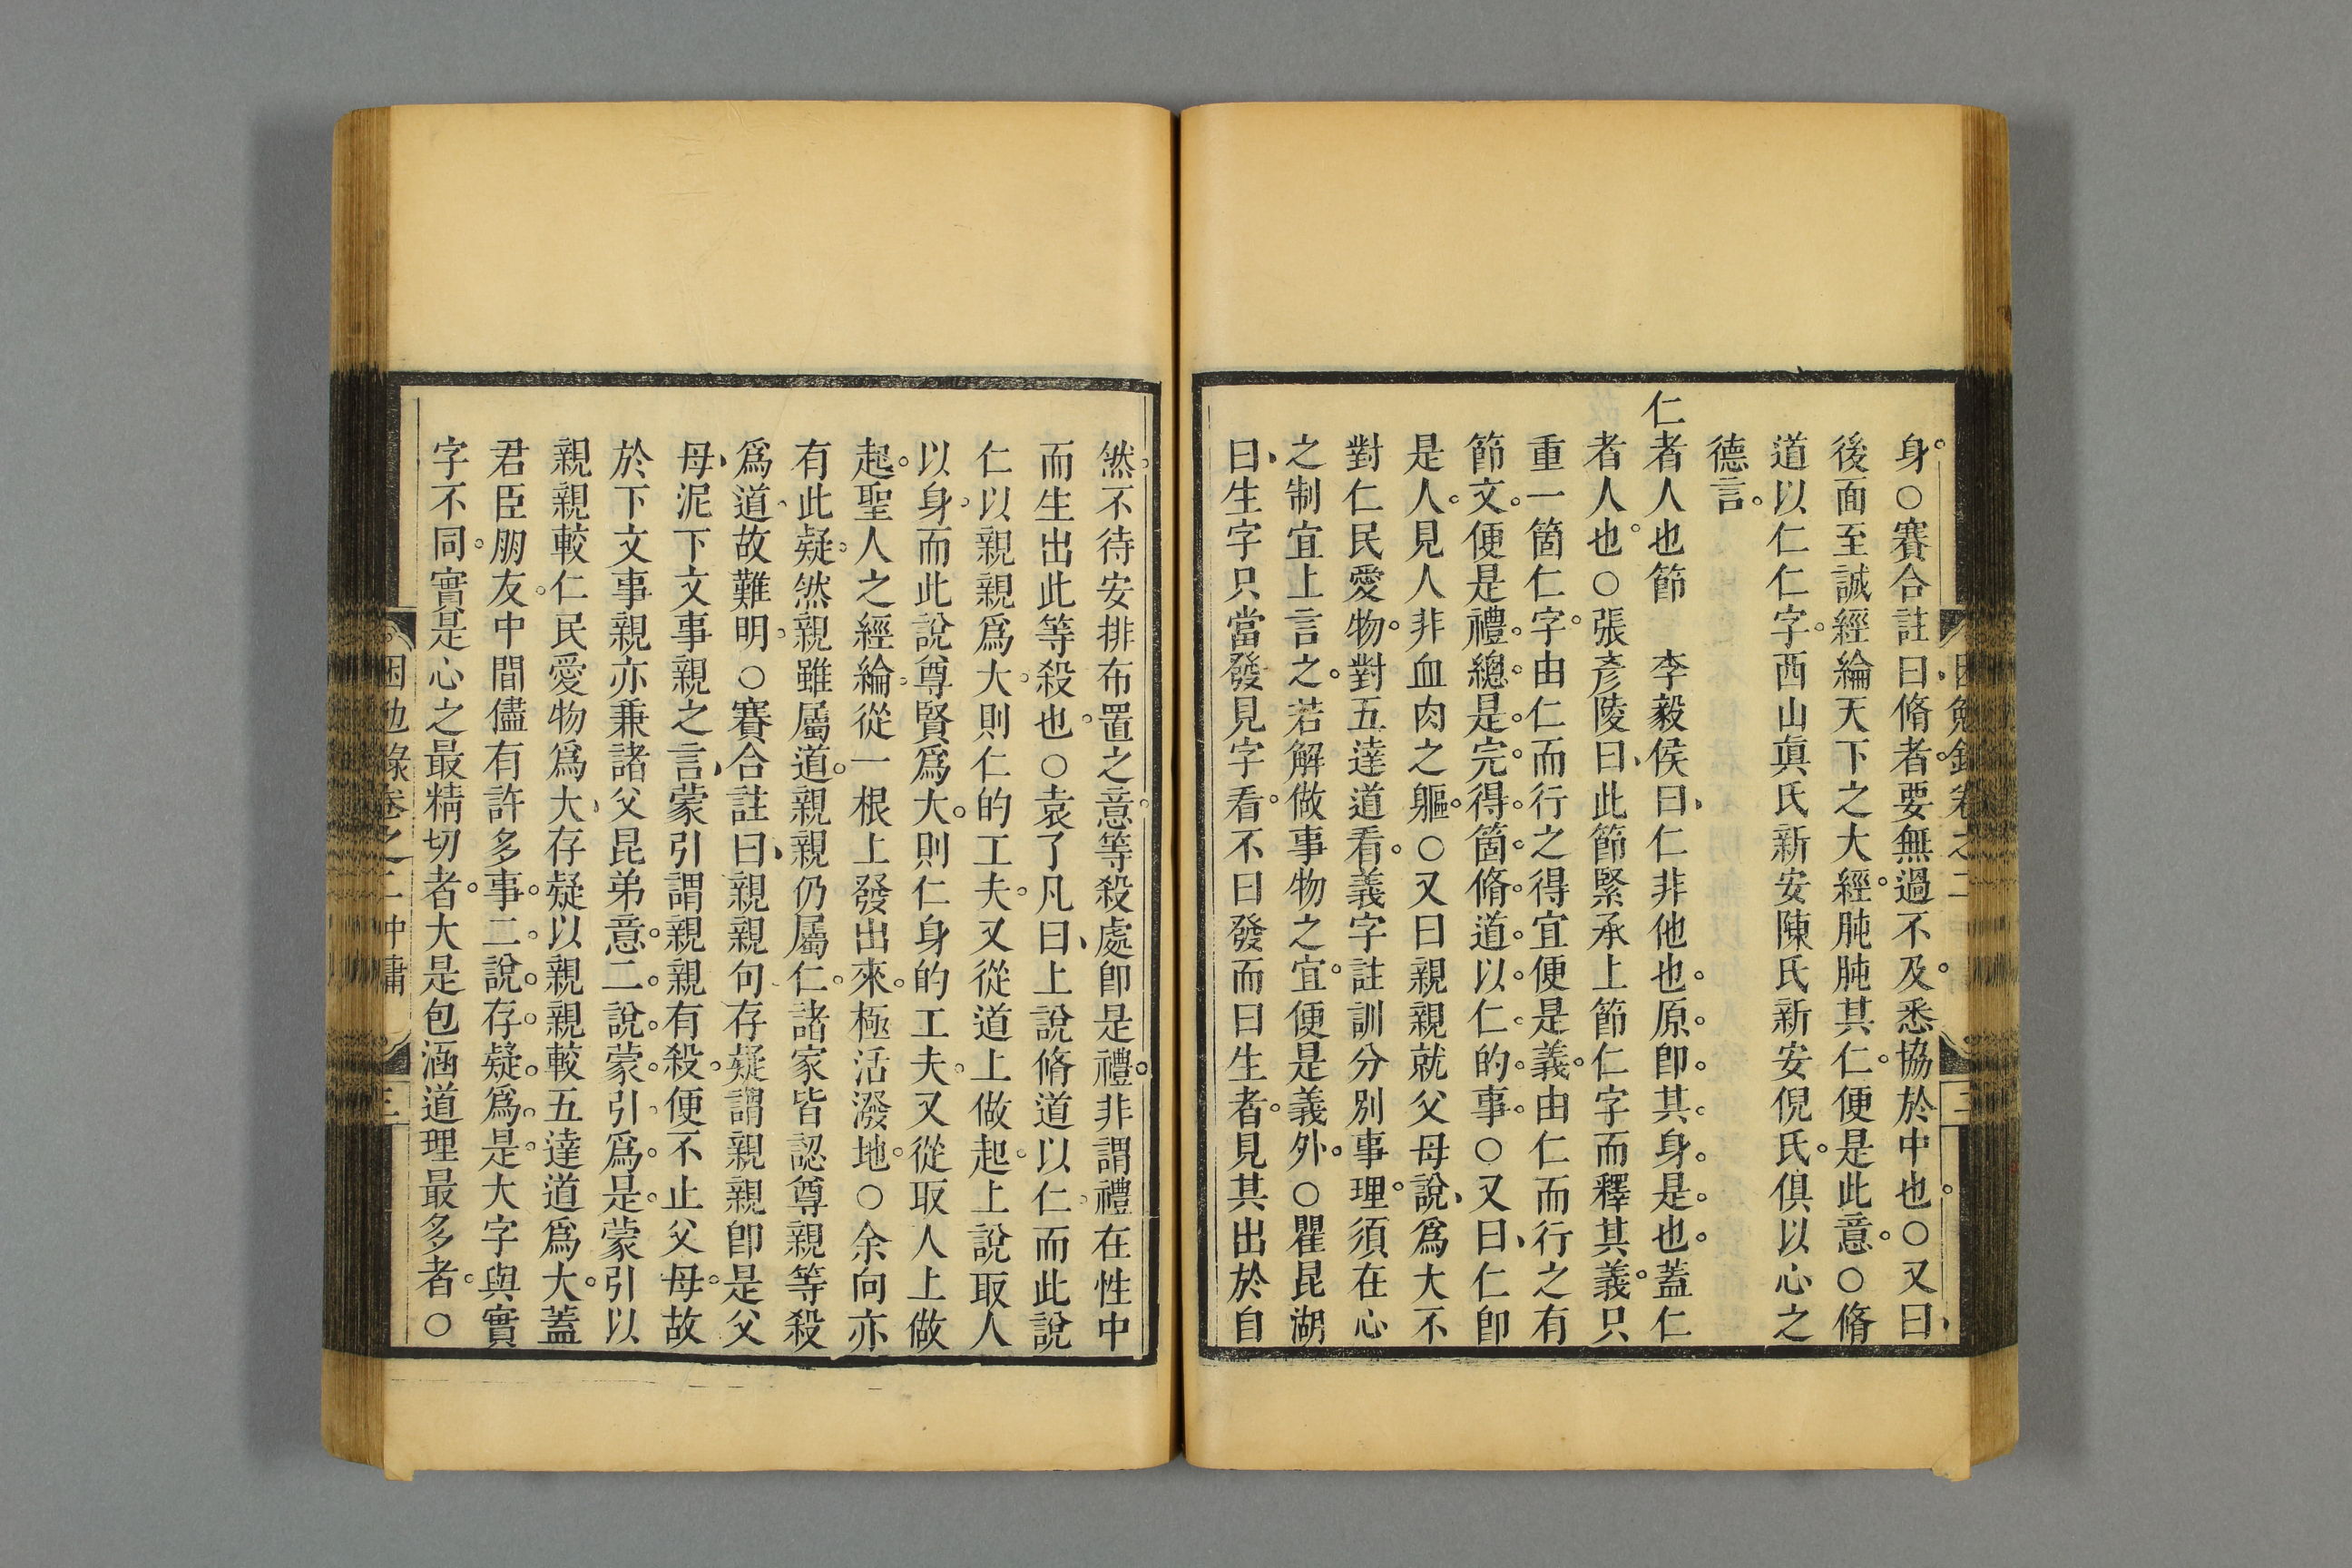 身。○賽合註曰、脩者。要無過不及。悉協於中也。○又曰、
後面至誠經綸天下之大經。肫肫其仁。便是此意。○脩
道以仁仁字。西山眞氏新安陳氏新安倪氏。俱以心之
德言。
仁者人也節　李毅侯曰、仁非他也。原。卽。其。身。是。也。蓋仁
者人也。○張彥陵曰、此節緊承上節仁字而釋其義。只
重一箇仁字。由仁而行之得宜便是義。由仁而行之有
節文。便是禮。總。是。完。得。箇。脩。道。以。仁。的。事。○又曰、仁卽
是人。見人非血肉之軀。○又曰親親就父母說、爲大不
對仁民愛物。對五達道看。義字註訓分別事理。須在心
之制宜上言之。若解做事物之宜。便是義外。○瞿昆湖
曰、生字只當發見字看。不曰發而曰生者。見其出於自
然。不待安排布置之意。等殺處卽是禮。非謂禮在性中
而生出此等殺也。○袁了凡曰、上說脩道以仁。而此說
仁以親親爲大。則仁的工夫。又從道上做起。上說取人
以身。而此說尊賢爲大。則仁身的工夫。又從取人上做
起。聖人之經綸。從一根上發出來。極活潑地。○余向亦
有此疑。然親雖屬道。親親仍屬仁。諸家皆認尊親等殺
爲道、故難明。○賽合註曰、親親句存疑謂親親卽是父
母、泥下文事親之言、蒙引謂親親有殺。便不止父母。故
於下文事親亦兼諸父昆弟意。二。說。蒙。引。爲。是。蒙引以
親親較仁民愛物爲大、存疑以親親較五達道爲大。蓋
君臣朋友。中間儘有許多事。二。說。存。疑。爲。是。大字與實
字不同。實是心之最精切者。大是包涵道理最多者。○
困勉錄卷之二 中庸 三